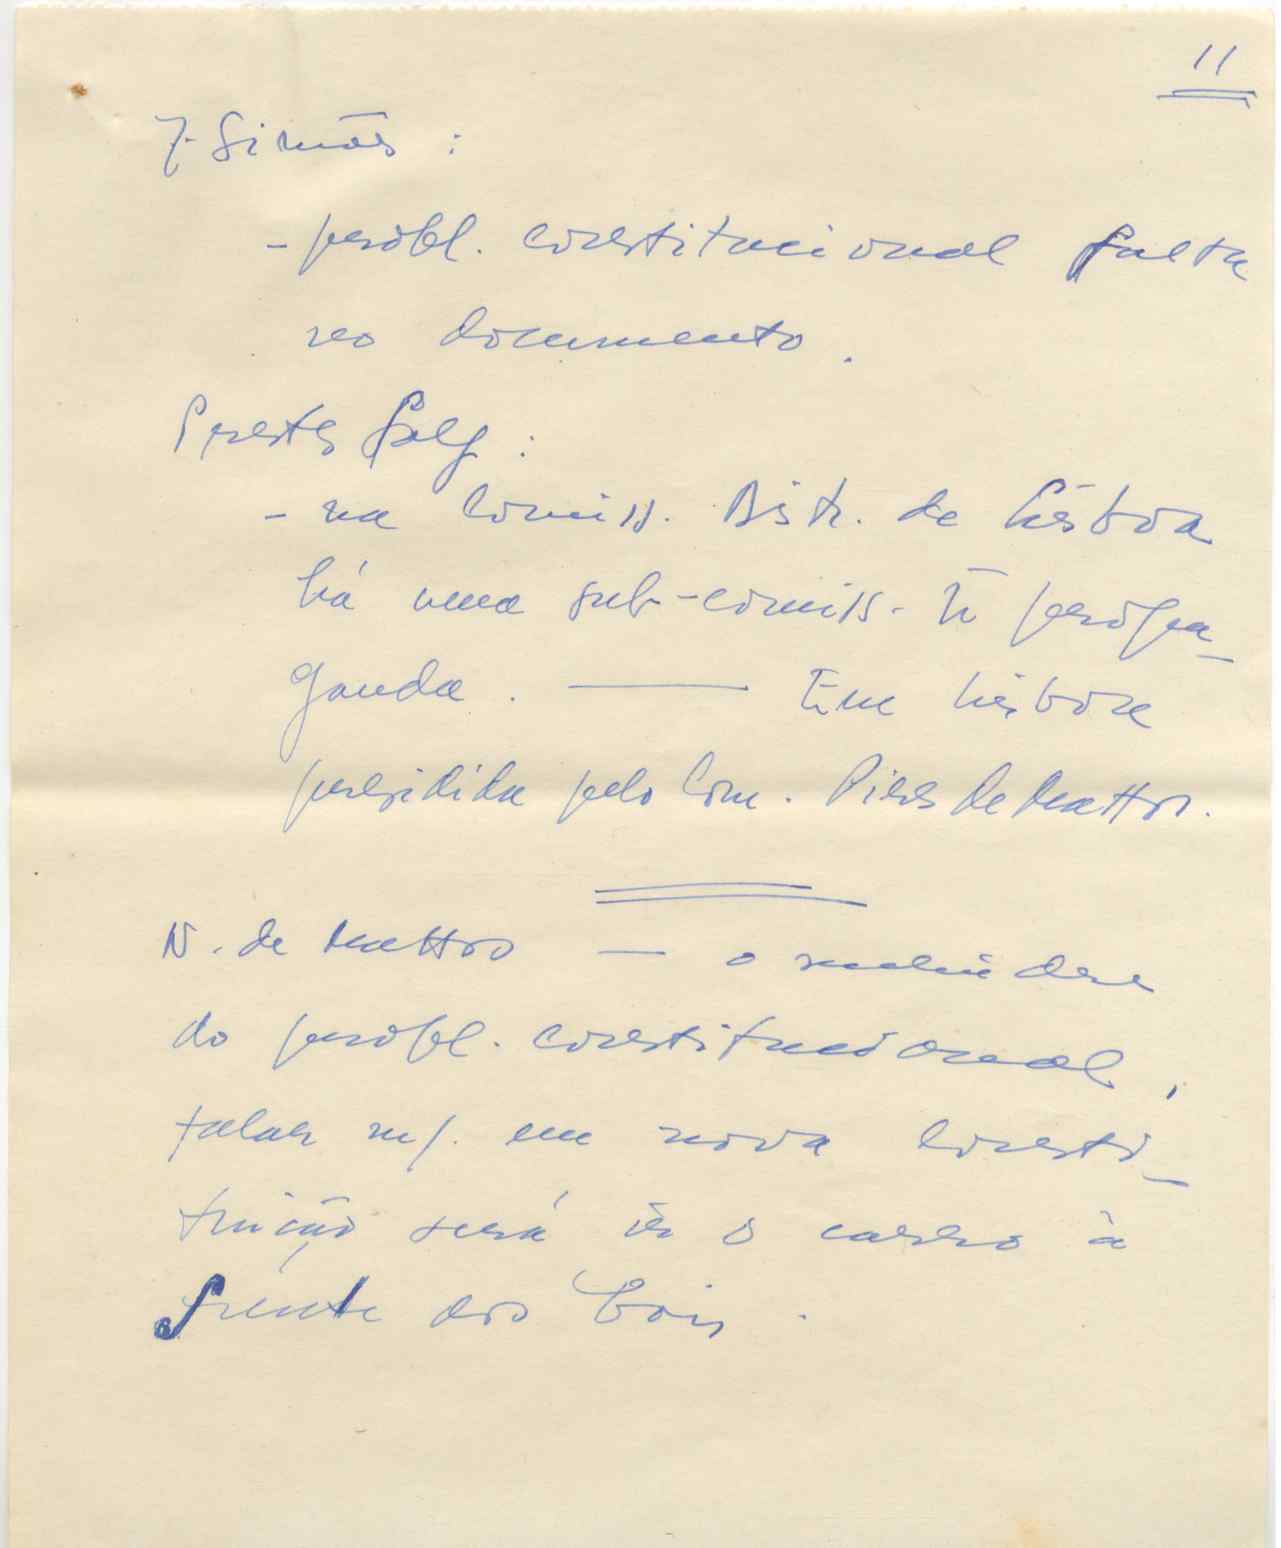 11
J. Simões :
- probl. constitucional falta
no documento.
Prestes Salg :
- na Comiss. Distr. de Lisboa
há uma sub-comiss. propa-
ganda. — Em Lisboa
presidida pelo Com. Pires de Mattos.
N. de Mattos — o
do probl. constitucional,
falar em nova Consti-
tuição será o carro à
frente dos bois.